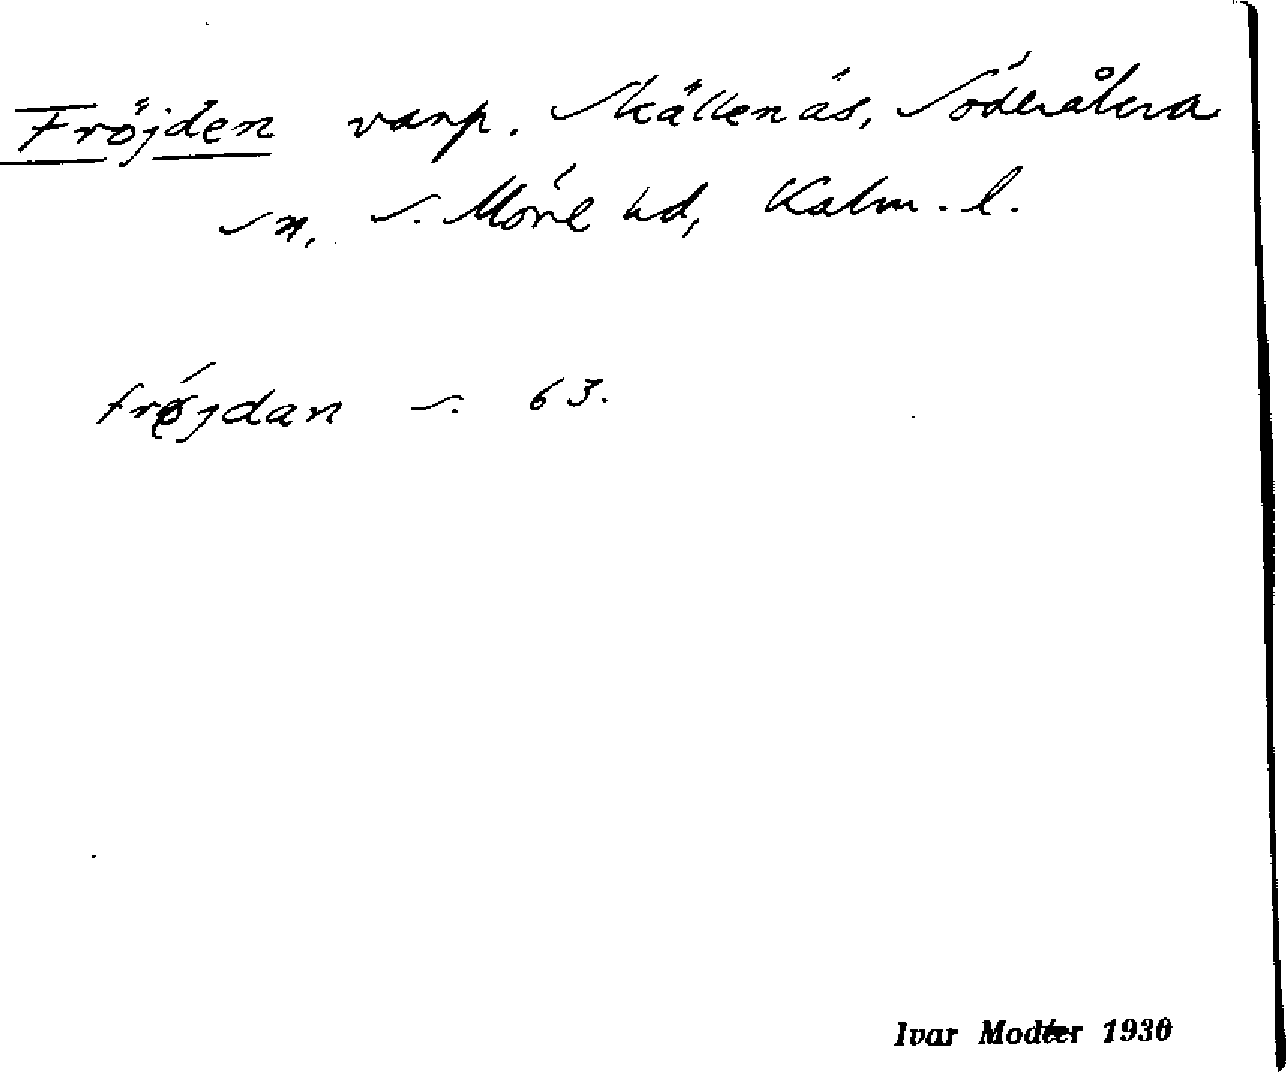 Fröjden varp. Skällenäs, Söderåkra
sn, S. Möre hd, Kalm. l.
frøjdan s. 63.
Ivar Modéer 1930